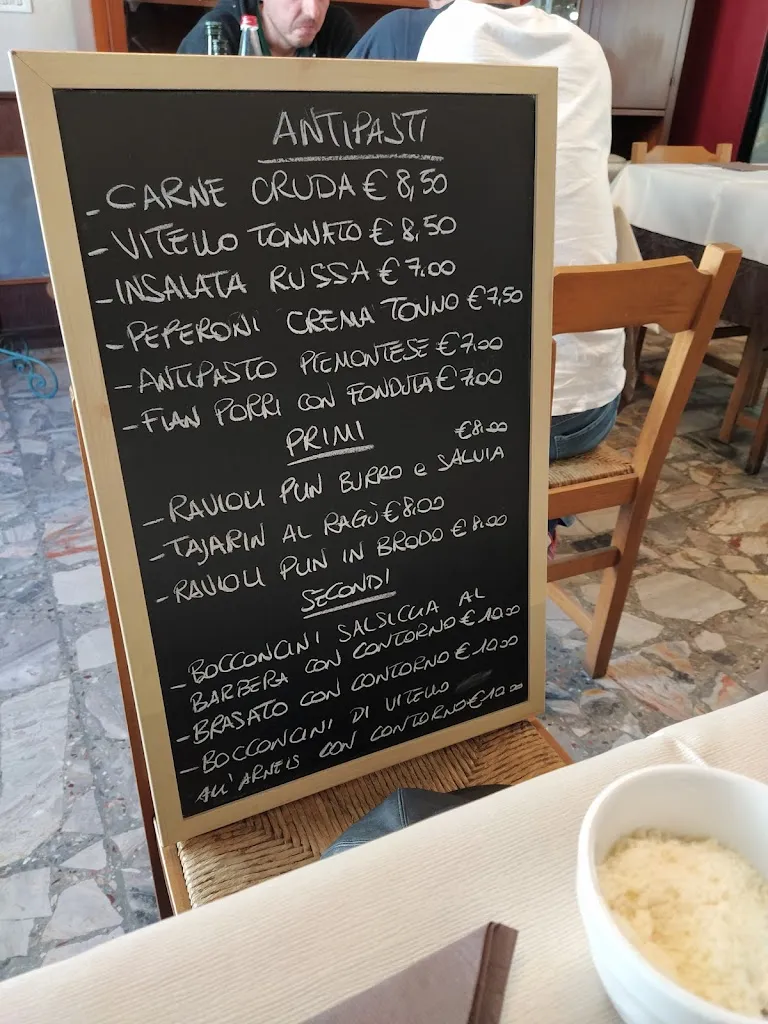 ANTIPASTI
- CARNE CRUDA € 8,50
- VITELLO TONNATO € 8,50
- INSALATA RUSSA € 7.00
- PEPERONI CREMA TONNO € 7,50
- ANTIPASTO PIEMONTESE € 7,00
- FLAN PORRI CON FONDUTA € 7,00
PRIMI
€ 8,00
- RAVIOLI PLIN BURRO e SALVIA
- TAJARIN AL RAGÙ € 8,00
- RAVIOLI PLIN IN BRODO € 8,00
SECONDI
- BOCCONCINI SALSICCIA AL
BARBERA CON CONTORNO € 10,00
- BRASATO CON CONTORNO € 10,00
- BOCCONCINI DI VITELLO
ALL'ARNEIS CON CONTORNO € 10,00